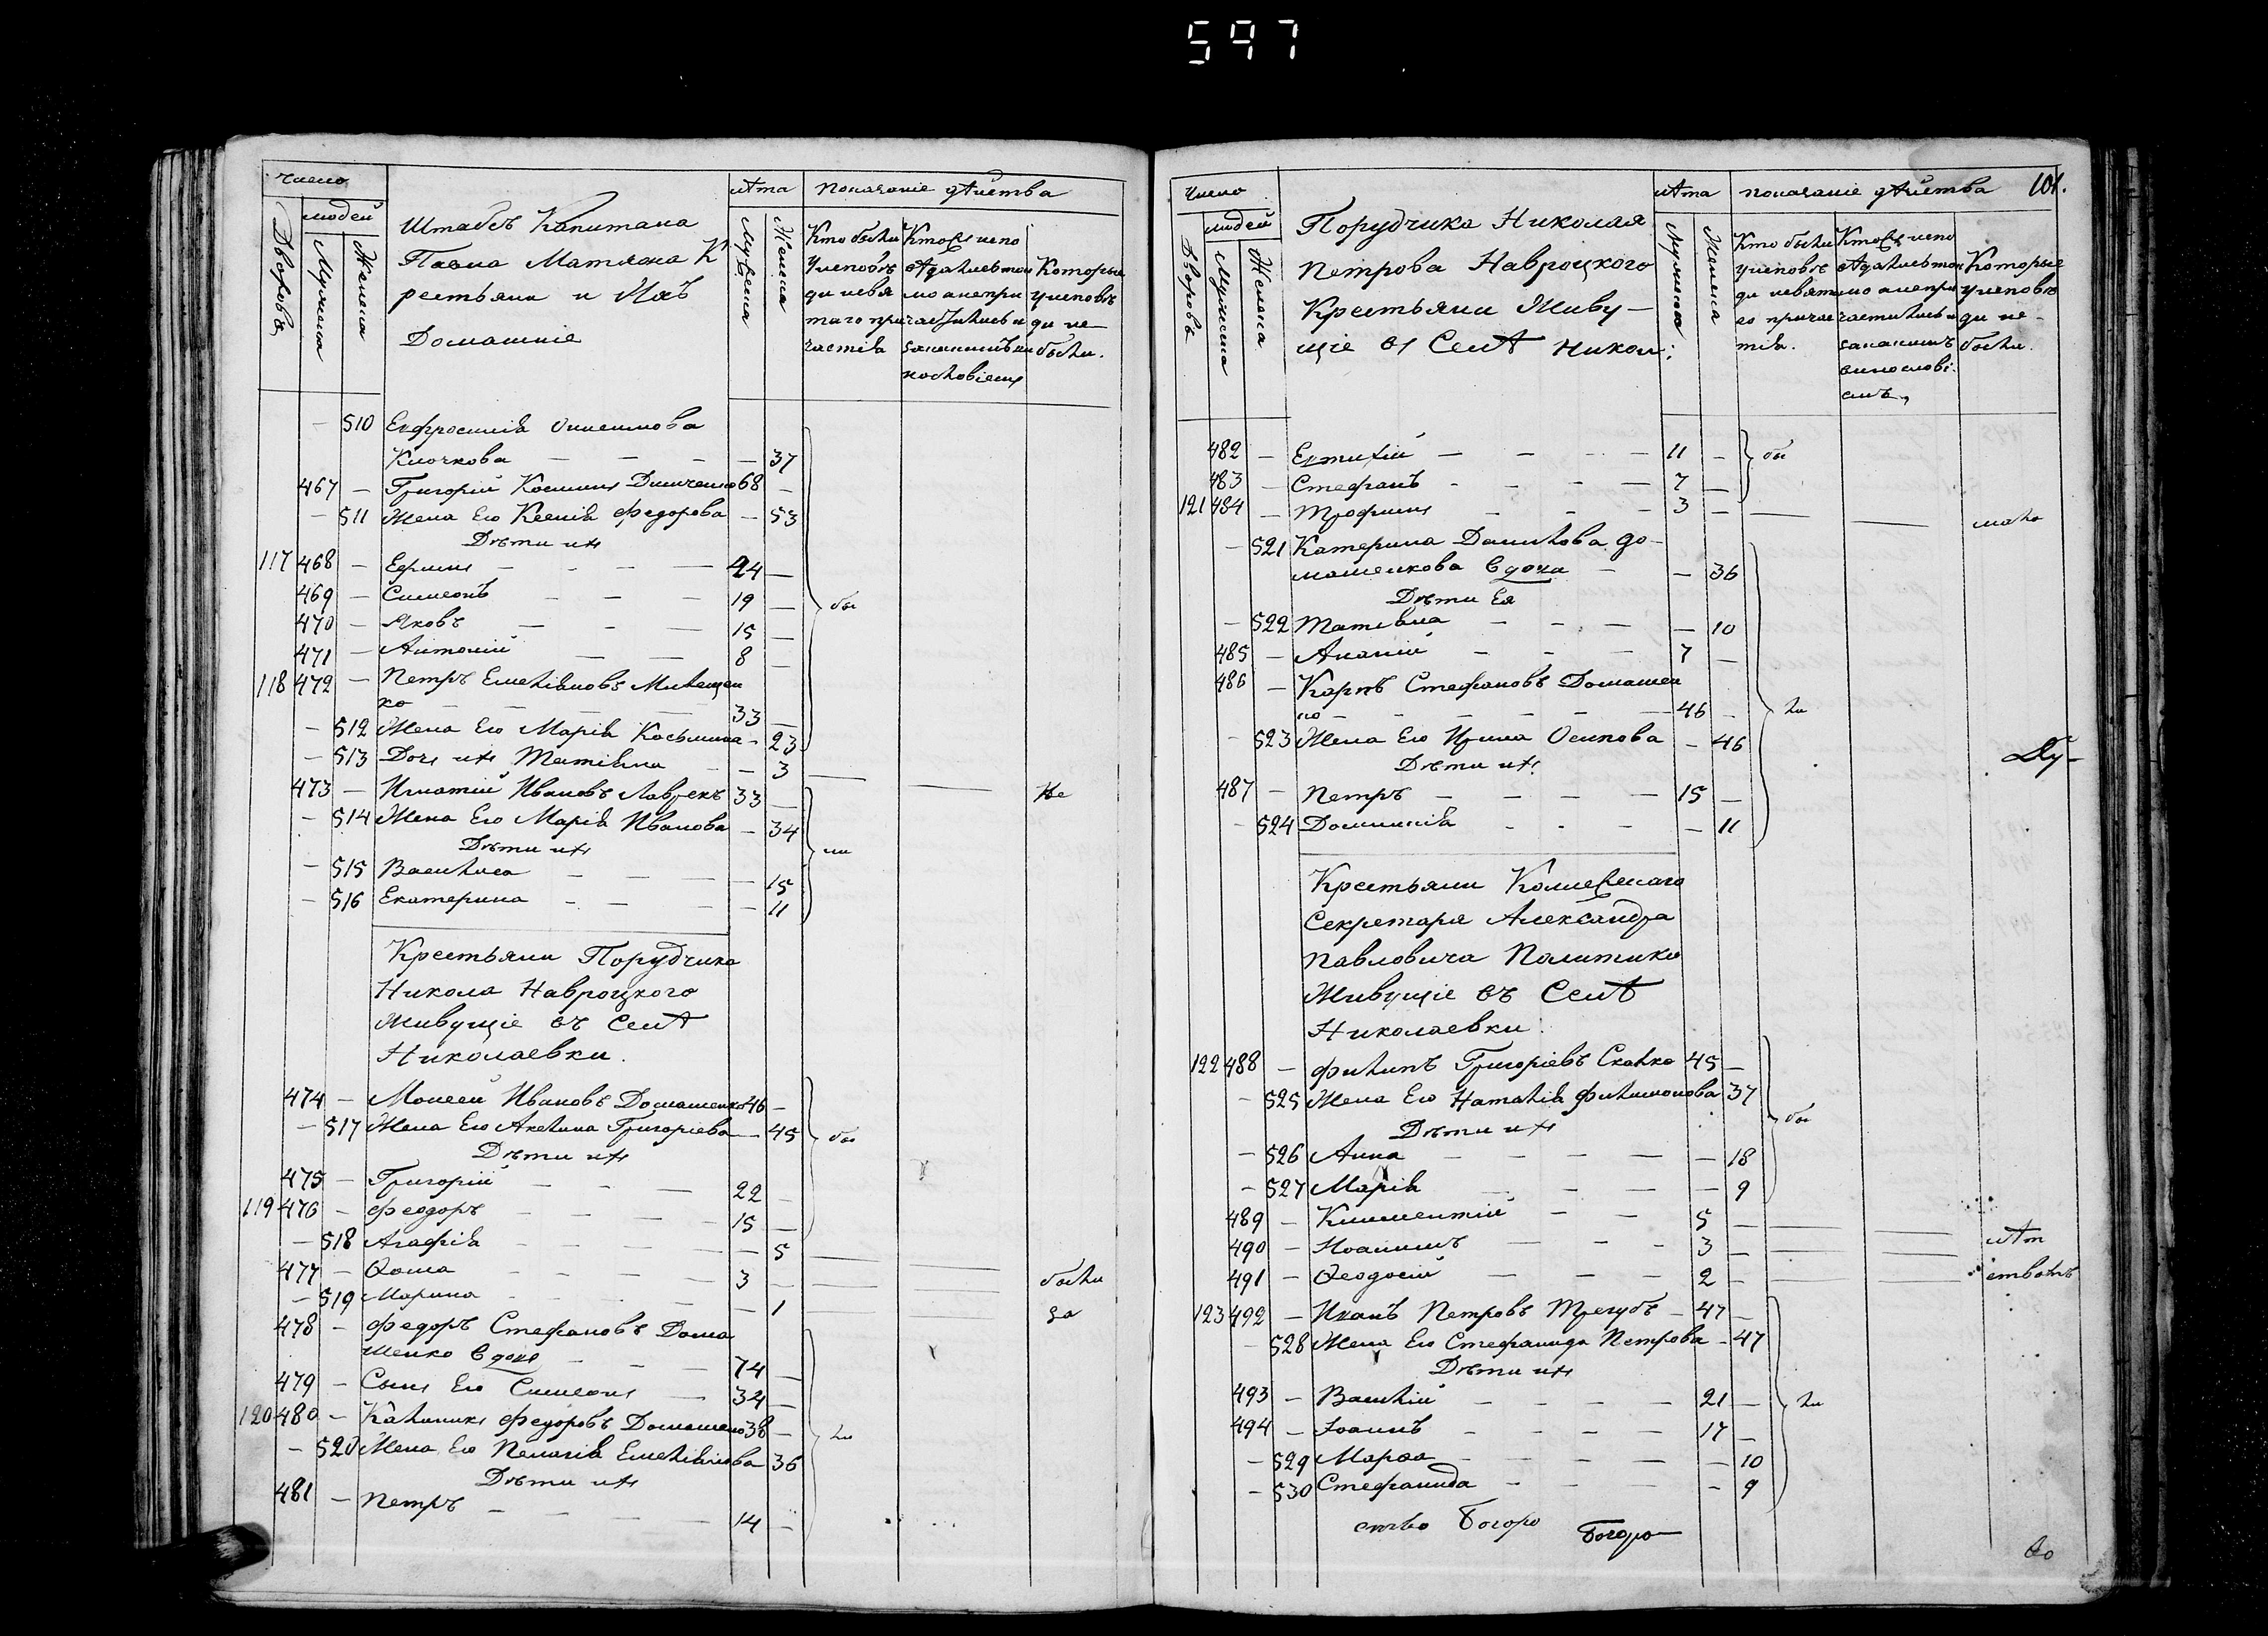 597
Число
людей
Дворовъ
Мужеска
Женска
Штабсъ Капитана
Павла Матяша К
рестьяни и Ихъ
Домашніе
лѣта
Мужеска
Женска
показаніе дѣйства
Кто были
у исповѣ
ди и свя
таго при
частія
Кто испо
вѣдались то
мо а не при
частились и
за какимъ ви
нословіемъ
Которые
у исповѣ
ди не
были.
— 510 Евфросинія Онисимова
Клочкова — — — — 37
467 — Григорій Косминъ Димченко 68 —
— 511 Жена Его Ксенія Федорова — 53
Дѣти ихъ
117 468 — Ефимъ — — — 24 —
469 — Симеонъ — — 19 —
470 — Яковъ — — — 15 —
бы
471 — Антоній — — 8 —
118 472 — Петръ Емеліяновъ Милащен
ко — — — — 33 —
— 512 Жена Его Марія Косьмина — 23
— 513 Дочь ихъ Татіяна — — 3
473 — Игнатій Ивановъ Лаврекъ 33 — — — Не
— 514 Жена Его Марія Иванова — 34
Дѣти ихъ
ли
— 515 Василиса — — — — 15
— 516 Екатерина — — — — 11
Крестьяни Порудчика
Никола Навроцкого
Живущіе въ Селѣ
Николаевки.
474 — Моисей Ивановъ Домашенко 46 —
— 517 Жена Его Акелина Григоріева — 45
бы
Дѣти ихъ
475 — Григорій — — — 22 —
119 476 — Феодоръ — — — 15 —
— 518 Агафія — — — — 5 — —
477 — Ѳома — — — 3 — — — были
— 519 Марина — — — — 1 — — за
478 — Федоръ Стефановъ Дома
шенко Вдовъ — — — 74 —
479 — Сынъ Его Симеонъ — 34 —
120 480 — Калиникъ Федоровъ Домашенко 38 —
ли
— 520 Жена Его Пелагія Емеліянова 36
Дѣти ихъ
481 — Петръ — — — — 14 —
101.
Число
людей
Дворовъ
Мужеска
Женска
Порудчика Николая
Петрова Навроцкого
Крестьяни Живу—
щіе въ Селѣ Никол:
лѣта
Мужеска
Женска
показаніе дѣйства
Кто были
у исповѣ
ди и свята
го причас
тія.
Кто испо
вѣдались то
мо а не при
частились и
за какимъ
винослові
емъ.
Которые
у исповѣ
ди не—
были.
482 — Евтихій — — — — 11 —
бы
483 — Стефанъ — — — — 7 —
121 484 — Трофимъ — — 3 — — — мало
— 521 Катерина Данилова до—
машенкова Вдова — — 36
Дѣти Ея
— 522 Татіана — — — — 10
485 — Ананій — — — 7 —
486 — Карпъ Стефановъ Домашен
ко — — — — — — 46 —
ли
— 523 Жена Его Ирина Осипова — 46
Дѣти ихъ
Ду—
487 — Петръ — — — — 15 —
— 524 Домникія — — — — 11
Крестьяни Колежскаго
Секретаря Александра
Павловича Политико
Живущіе въ Селѣ
Николаевки.
122 488 — Филипъ Григоріевъ Скалко 45 —
— 525 Жена Его Наталія Филимонова 37
бы
Дѣти ихъ
— 526 Анна — — — — — 18
— 527 Марія — — — — 9
489 — Климентій — — 5 — — —
лѣт
490 — Иоаннъ — — — 3 — — —
491 — Ѳеодосій — — — 2 — — — ствомъ
123 492 — Иванъ Петровъ Трегубъ — 47 —
— 528 Жена Его Стефанида Петрова — 47
Дѣти ихъ
493 — Василій — — — — 21 —
ли
494 — Іоаннъ — — — — 17 —
— 529 Марѳа — — — — — 10
— 530 Стефанида — — — — 9
ство Богоро Богоро—